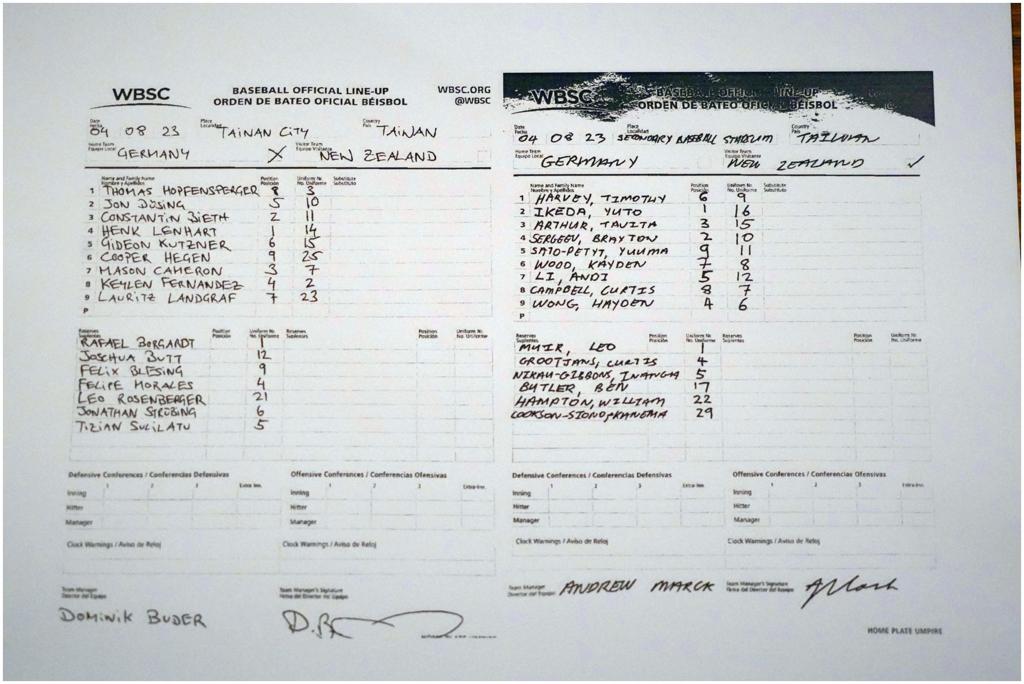 WBSC
BASEBALL OFFICIAL LINE-UP
ORDEN DE BATEO OFICIAL BÉISBOL
WBSC.ORG
@WBSC
Date
Fecha
04 08 23
Place
Localidad
TAINAN CITY
Country
País
TAINAN
Home Team
Equipo Local
GERMANY
X
Visitor Team
Equipo Visitante
NEW ZEALAND
Name and Family Name
Nombre y Apellidos
Position
Posición
Uniform Nr.
No. Uniforme
Substitute
Substituto
1 THOMAS HOPFENSPERGER 8 3
2 JON DÜSING 5 10
3 CONSTANTIN BIETH 2 11
4 HENK LENHART 1 14
5 GIDEON KUTZNER 6 15
6 COOPER HEGEN 9 25
7 MASON CAMERON 3 7
8 KEYLEN FERNANDEZ 4 2
9 LAURITZ LANDGRAF 7 23
P
Reserves
Suplentes
Position
Posición
Uniform Nr.
No. Uniforme
Reserves
Suplentes
Position
Posición
Uniform Nr.
No. Uniforme
RAFAEL BORGARDT 1
JOSCHUA BUTT 12
FELIX BLESING 9
FELIPE MORALES 4
LEO ROSENBERGER 21
JONATHAN STRÜBING 6
TIZIAN SULILATU 5
Defensive Conferences / Conferencias Defensivas
1 2 3 Extra Inn.
Inning
Hitter
Manager
Offensive Conferences / Conferencias Ofensivas
1 2 3 Extra Inn.
Inning
Hitter
Manager
Clock Warnings / Aviso de Reloj
Clock Warnings / Aviso de Reloj
Team Manager
Director del Equipo
DOMINIK BUDER
Team Manager's Signature
Firma del Director del Equipo
WBSC
BASEBALL OFFICIAL LINE-UP
ORDEN DE BATEO OFICIAL BÉISBOL
Date
Fecha
04 08 23
Place
Localidad
SECONDARY BASEBALL STADIUM
Country
País
TAIWAN
Home Team
Equipo Local
GERMANY
Visitor Team
Equipo Visitante
NEW ZEALAND ✓
Name and Family Name
Nombre y Apellidos
Position
Posición
Uniform Nr.
No. Uniforme
Substitute
Substituto
1 HARVEY, TIMOTHY 6 9
2 IKEDA, YUTO 1 16
3 ARTHUR, TAVITA 3 15
4 SERGEEV, BRAYTON 2 10
5 SATO-PETYT, YUUMA 9 11
6 WOOD, KAYDEN 7 8
7 LI, ANDI 5 12
8 CAMPBELL, CURTIS 8 7
9 WONG, HAYDEN 4 6
P
Reserves
Suplentes
Position
Posición
Uniform Nr.
No. Uniforme
Reserves
Suplentes
Position
Posición
Uniform Nr.
No. Uniforme
MUIR, LEO 1
GROOTJANS, CURTIS 4
NIKAU-GIBBONS, INANGA 5
BUTLER, BEN 17
HAMPTON, WILLIAM 22
COOKSON-SIONO, KANEMA 29
Defensive Conferences / Conferencias Defensivas
1 2 3 Extra Inn.
Inning
Hitter
Manager
Offensive Conferences / Conferencias Ofensivas
1 2 3 Extra Inn.
Inning
Hitter
Manager
Clock Warnings / Aviso de Reloj
Clock Warnings / Aviso de Reloj
Team Manager
Director del Equipo
ANDREW MARCK
Team Manager's Signature
Firma del Director del Equipo
HOME PLATE UMPIRE